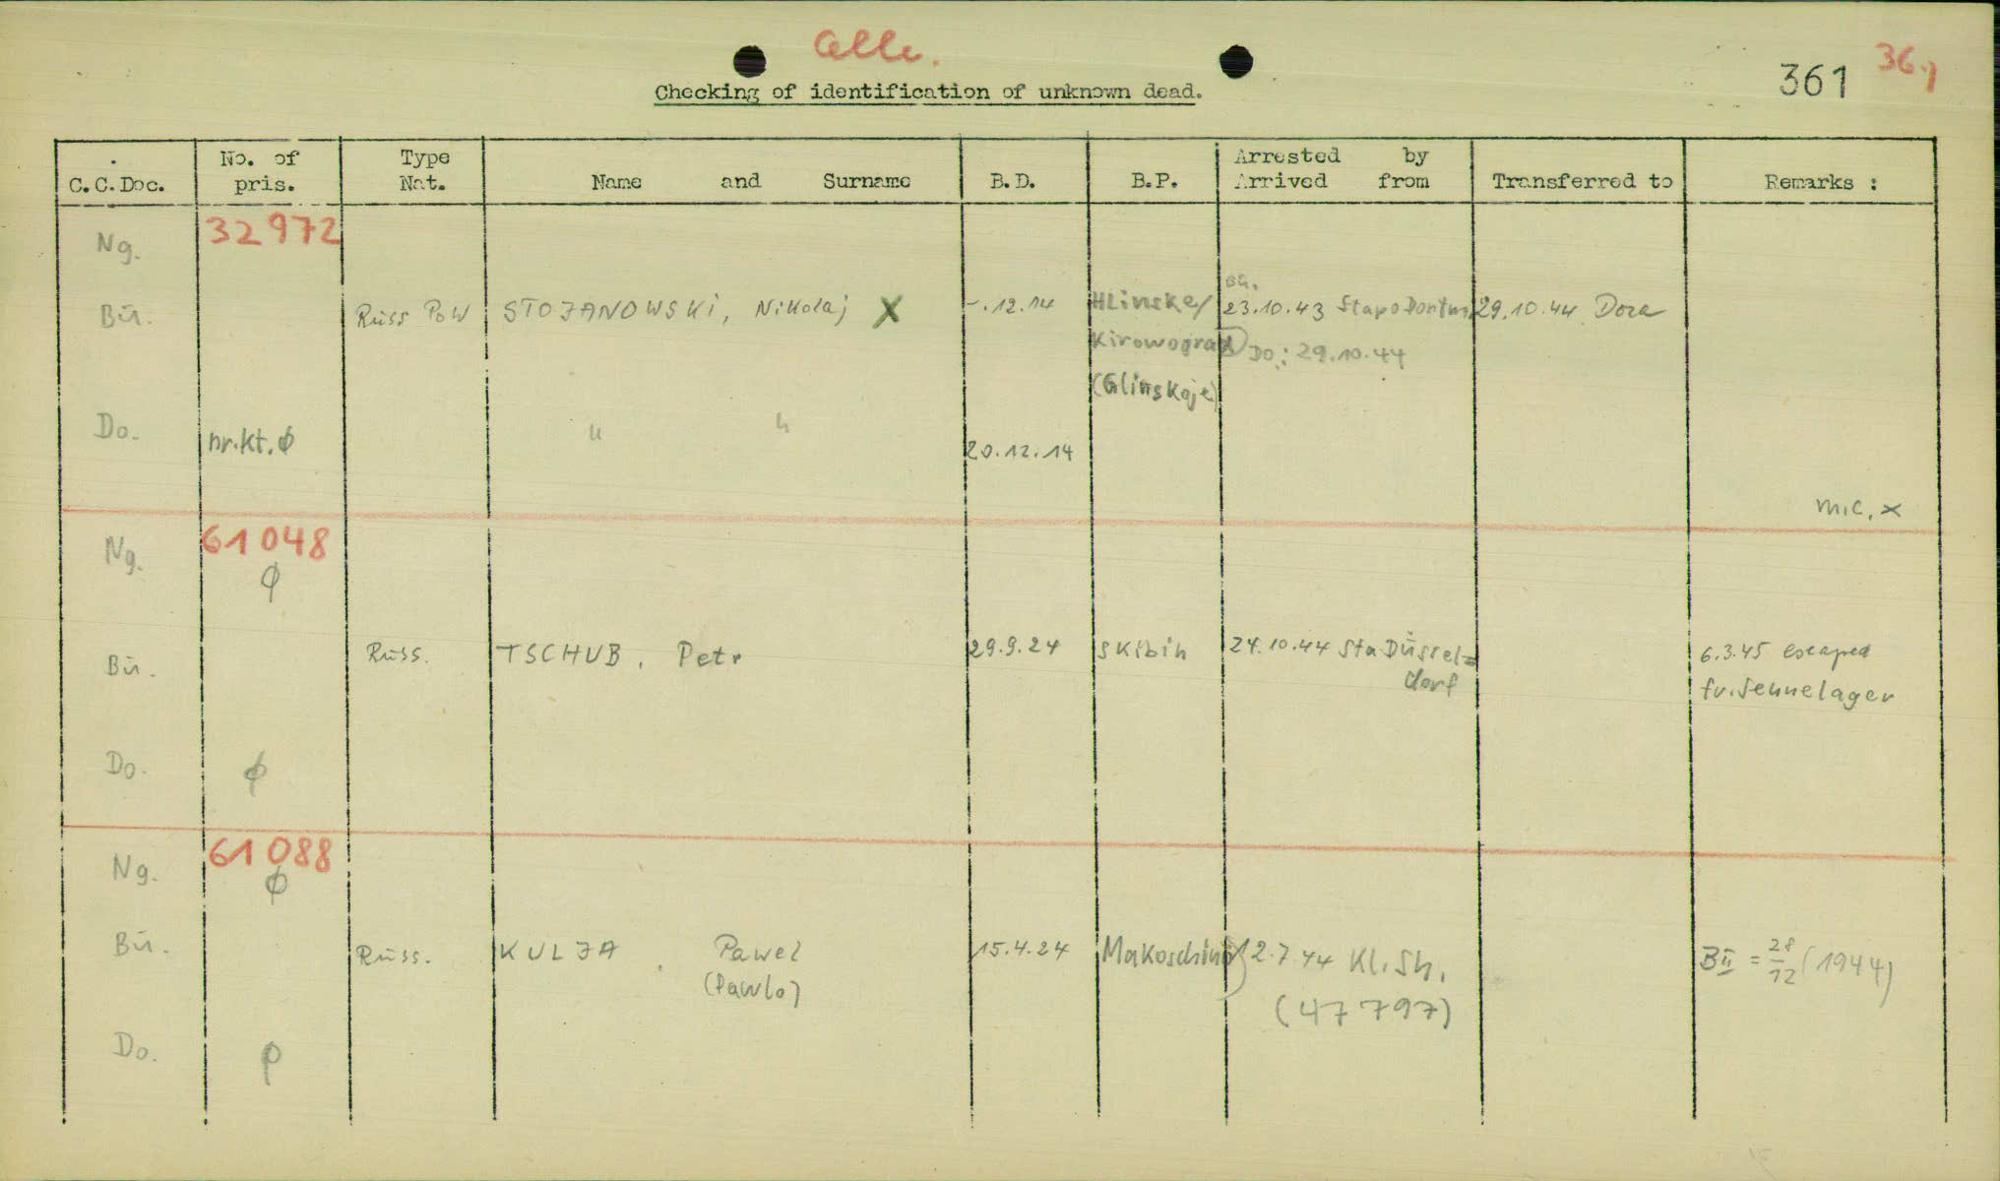 Celle.
361 36.)
Checking of identification of unknown dead.
C.C.Doc. No. of pris. Type Nat. Name and Surname B.D. B.P. Arrested by Arrived from Transferred to Remarks :
Ng. 32972
Bu.
Bü. Russ PoW STOJANOWSKI, Nikolaj X -.12.14 Hlinske/ 23.10.43 Stapo Dortm. 29.10.44 Dora
Kirowograd Do.: 29.10.44
(Glinskoje)
Do. nr.kt. ø " " 20.12.14
m.c. x
Ng. 61048
ø
Bü. Russ. TSCHUB, Petr 29.9.24 Skibin 24.10.44 Sta Düssel=
dorf
6.3.45 escaped
fr. Sennelager
Do. ø
Ng. 61088
ø
Bü. Russ. KULJA, Pawel 15.4.24 Makoschino 2.7.44 Kl. Sh. BII = 28/12 (1944)
(Pawlo) (47797)
Do. ø